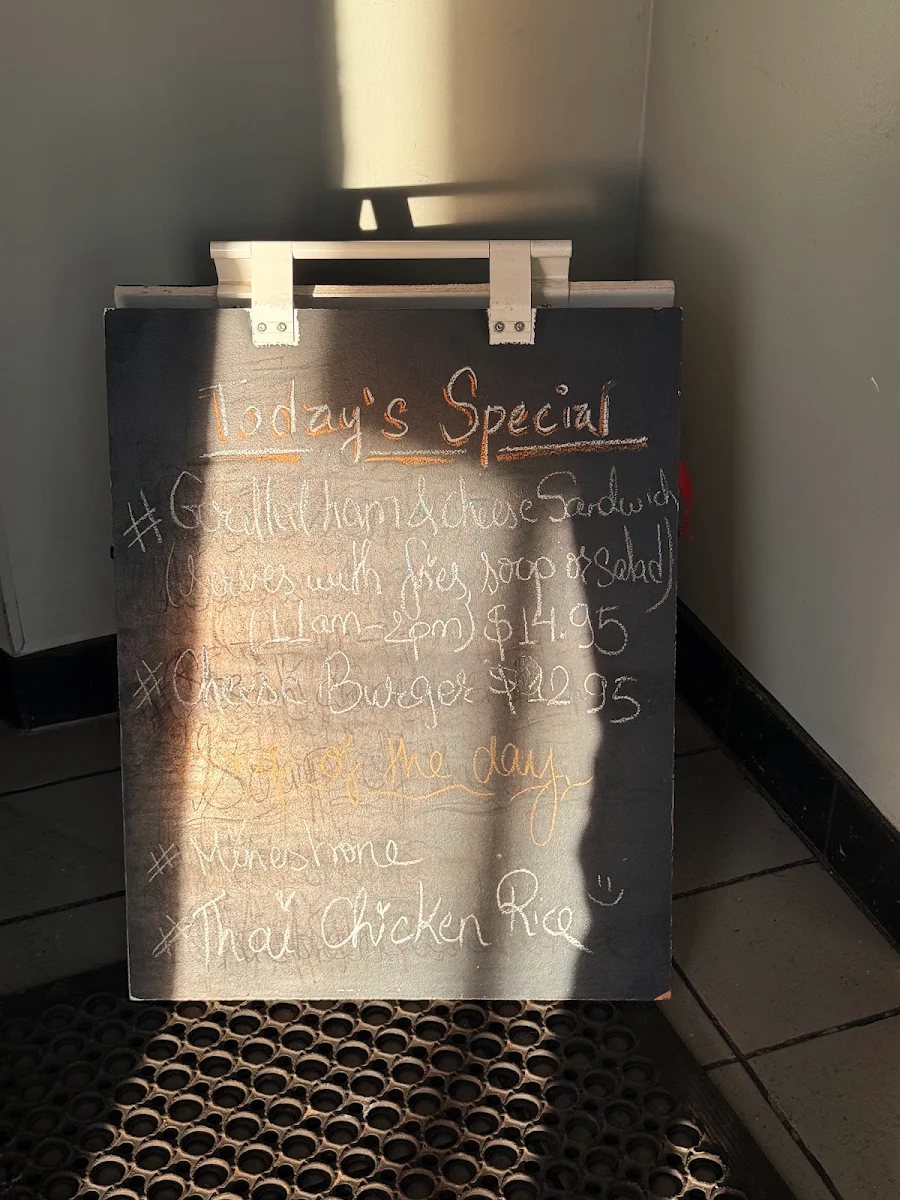 Today's Special
# Grilled ham & cheese Sandwich
(Serves with fries, soop or Salad)
(11am-2pm) $14.95
# Cheese Burger $12.95
Soup of the day
# Minestrone
# Thai Chicken Rice